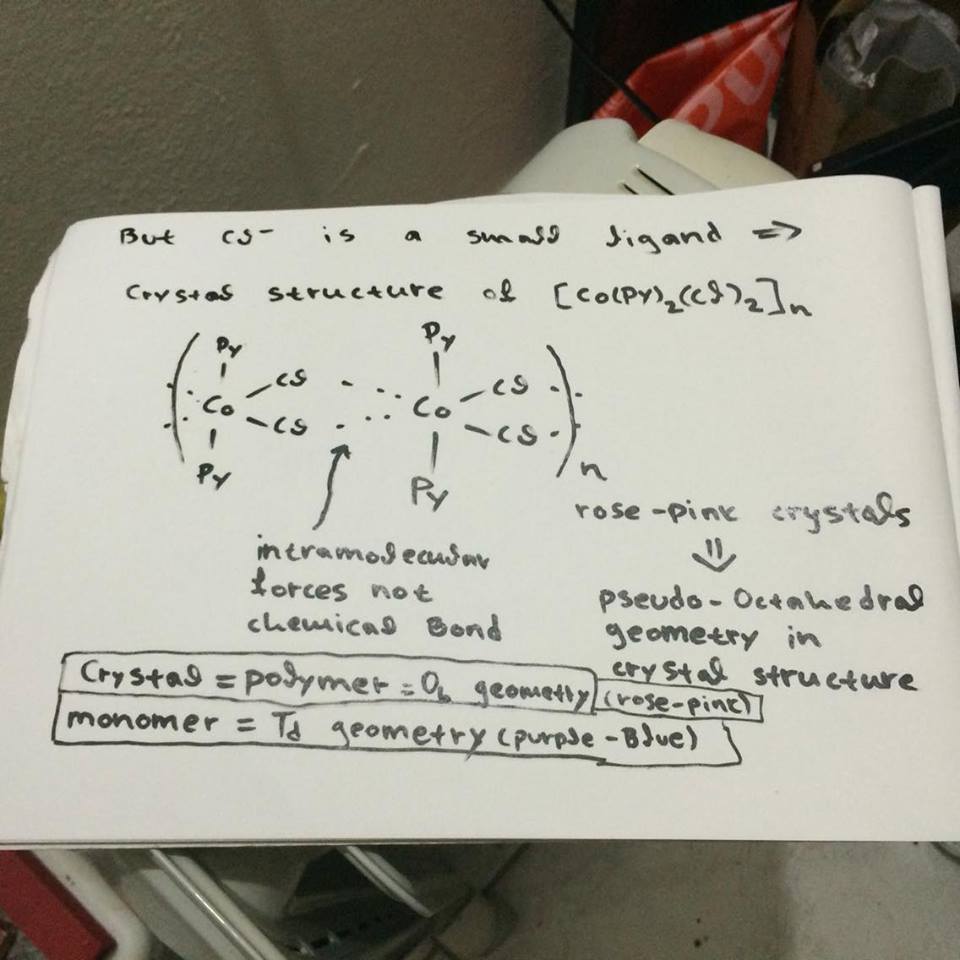 But Cl- is a small ligand ⇒
Crystal structure of [Co(Py)2(Cl)2]n
Py Py
Cl Cl
Co Co
Cl Cl
Py Py
n
rose-pink crystals
⇓
intramolecular
forces not
chemical Bond
pseudo-Octahedral
geometry in
crystal structure
Crystal = polymer = Oh geometry (rose-pink)
monomer = Td geometry (purple-Blue)